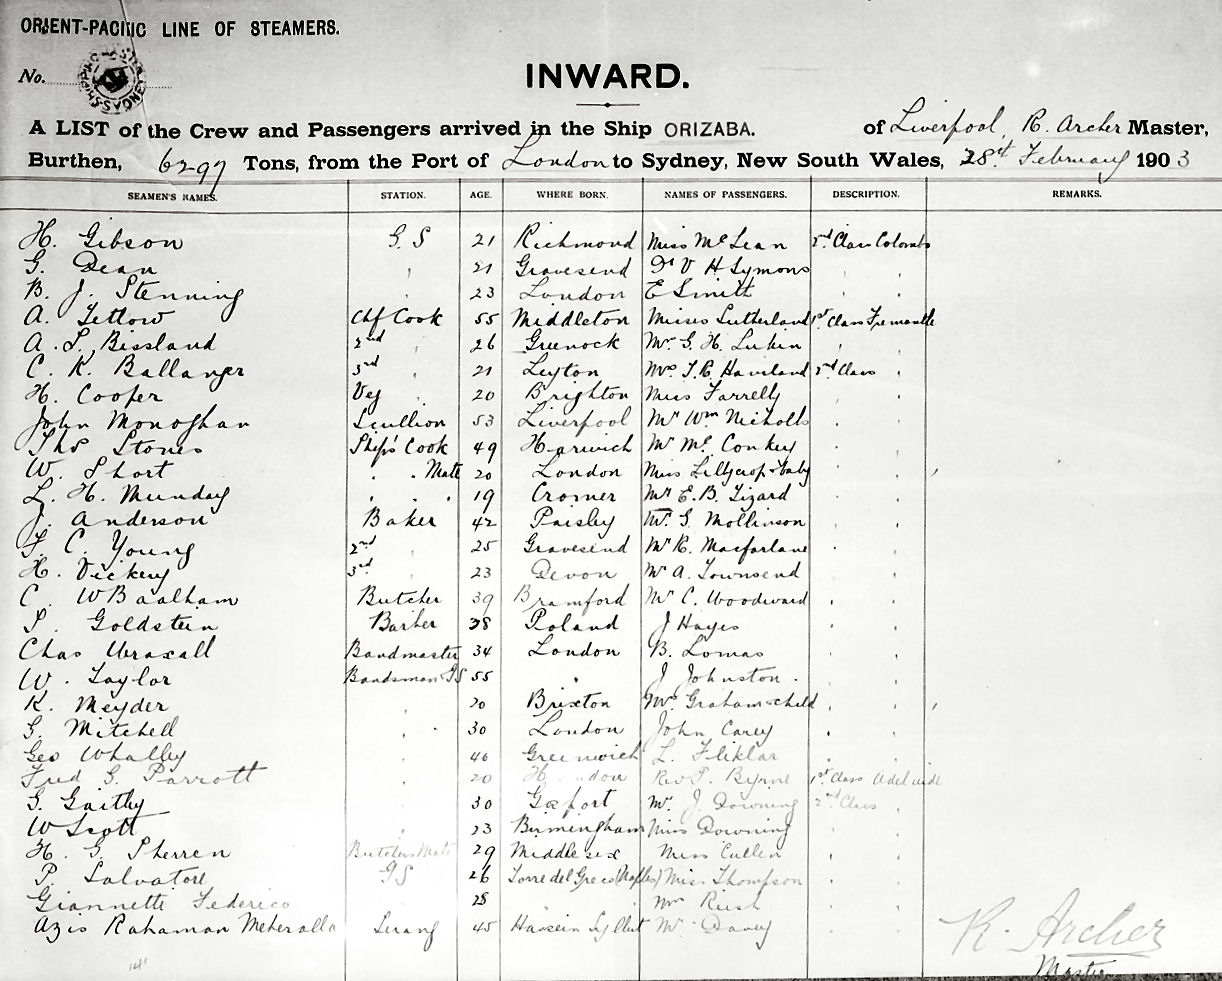 ORIENT-PACIFIC LINE OF STEAMERS.
No.
INWARD.
A LIST of the Crew and Passengers arrived in the Ship ORIZABA. of Liverpool, R. Archer Master,
Burthen, 6297 Tons, from the Port of London to Sydney, New South Wales, 28th February 1903
SEAMEN'S NAMES. STATION. AGE. WHERE BORN. NAMES OF PASSENGERS. DESCRIPTION. REMARKS.
H. Gibson G.S 21 Richmond Miss McLean 2nd Class Colombo
G. Dean " 21 Gravesend Dr V H Symons " "
B. J. Stenning " 23 London E Smith " "
A. Tetlow Chf Cook 55 Middleton Misses Sutherland 1st Class Fremantle
A. L. Bissland 2nd " 26 Greenock Mr. G. H. Lukin " "
C. R. Ballanger 3rd " 21 Leyton Mrs T. R. Haviland 2nd Class "
H. Cooper Veg " 20 Brighton Miss Farrelly " "
John Monoghan Scullion 53 Liverpool Mr Wm Nicholls " "
Thos Stones Ship's Cook 49 Harwich Mr McConkey " "
W. Short " " Mate 20 London Miss Lillycrop & baby " " "
L. H. Munday " " " 19 Cromer Mr E. B. Lizard " "
J. Anderson Baker 42 Paisley Mr. G. Mollinson " "
F. C. Young 2nd " 25 Gravesend Mr R. Macfarlane " "
H. Vickery 3rd " 23 Devon Mr A. Townsend " "
C. W Baalham Butcher 39 Bramford Mr C. Woodward " "
P. Goldstein Barber 38 Poland J Hayes " "
Chas Wraxall Bandmaster 34 London B. Lomas " "
W. Taylor Bandsman GS 55 " J Johnston " "
K. Meyder " 20 Brixton Mrs Graham & child " " "
G. Mitchell " " 30 London John Carey " "
Geo Whalley " 46 Greenwich L. Fliklar " "
Fred G. Parrott " 20 Rev P. Byrne 1st Class Adelaide
G. Gaithy " 30 Gosport Mr. J. Downing 2nd Class "
W Scott " 23 Birmingham Miss Downing " "
H. G. Sherren Butchers Mate 29 Middlesex Miss Cullen " "
P. Salvatore GS 26 Torre del Greco (Naples) Miss Thompson " "
Giannette Federico " 28 Rush " "
Azis Rahaman Meheralla Serang 45 Mr Davey " "
R. Archer
Master